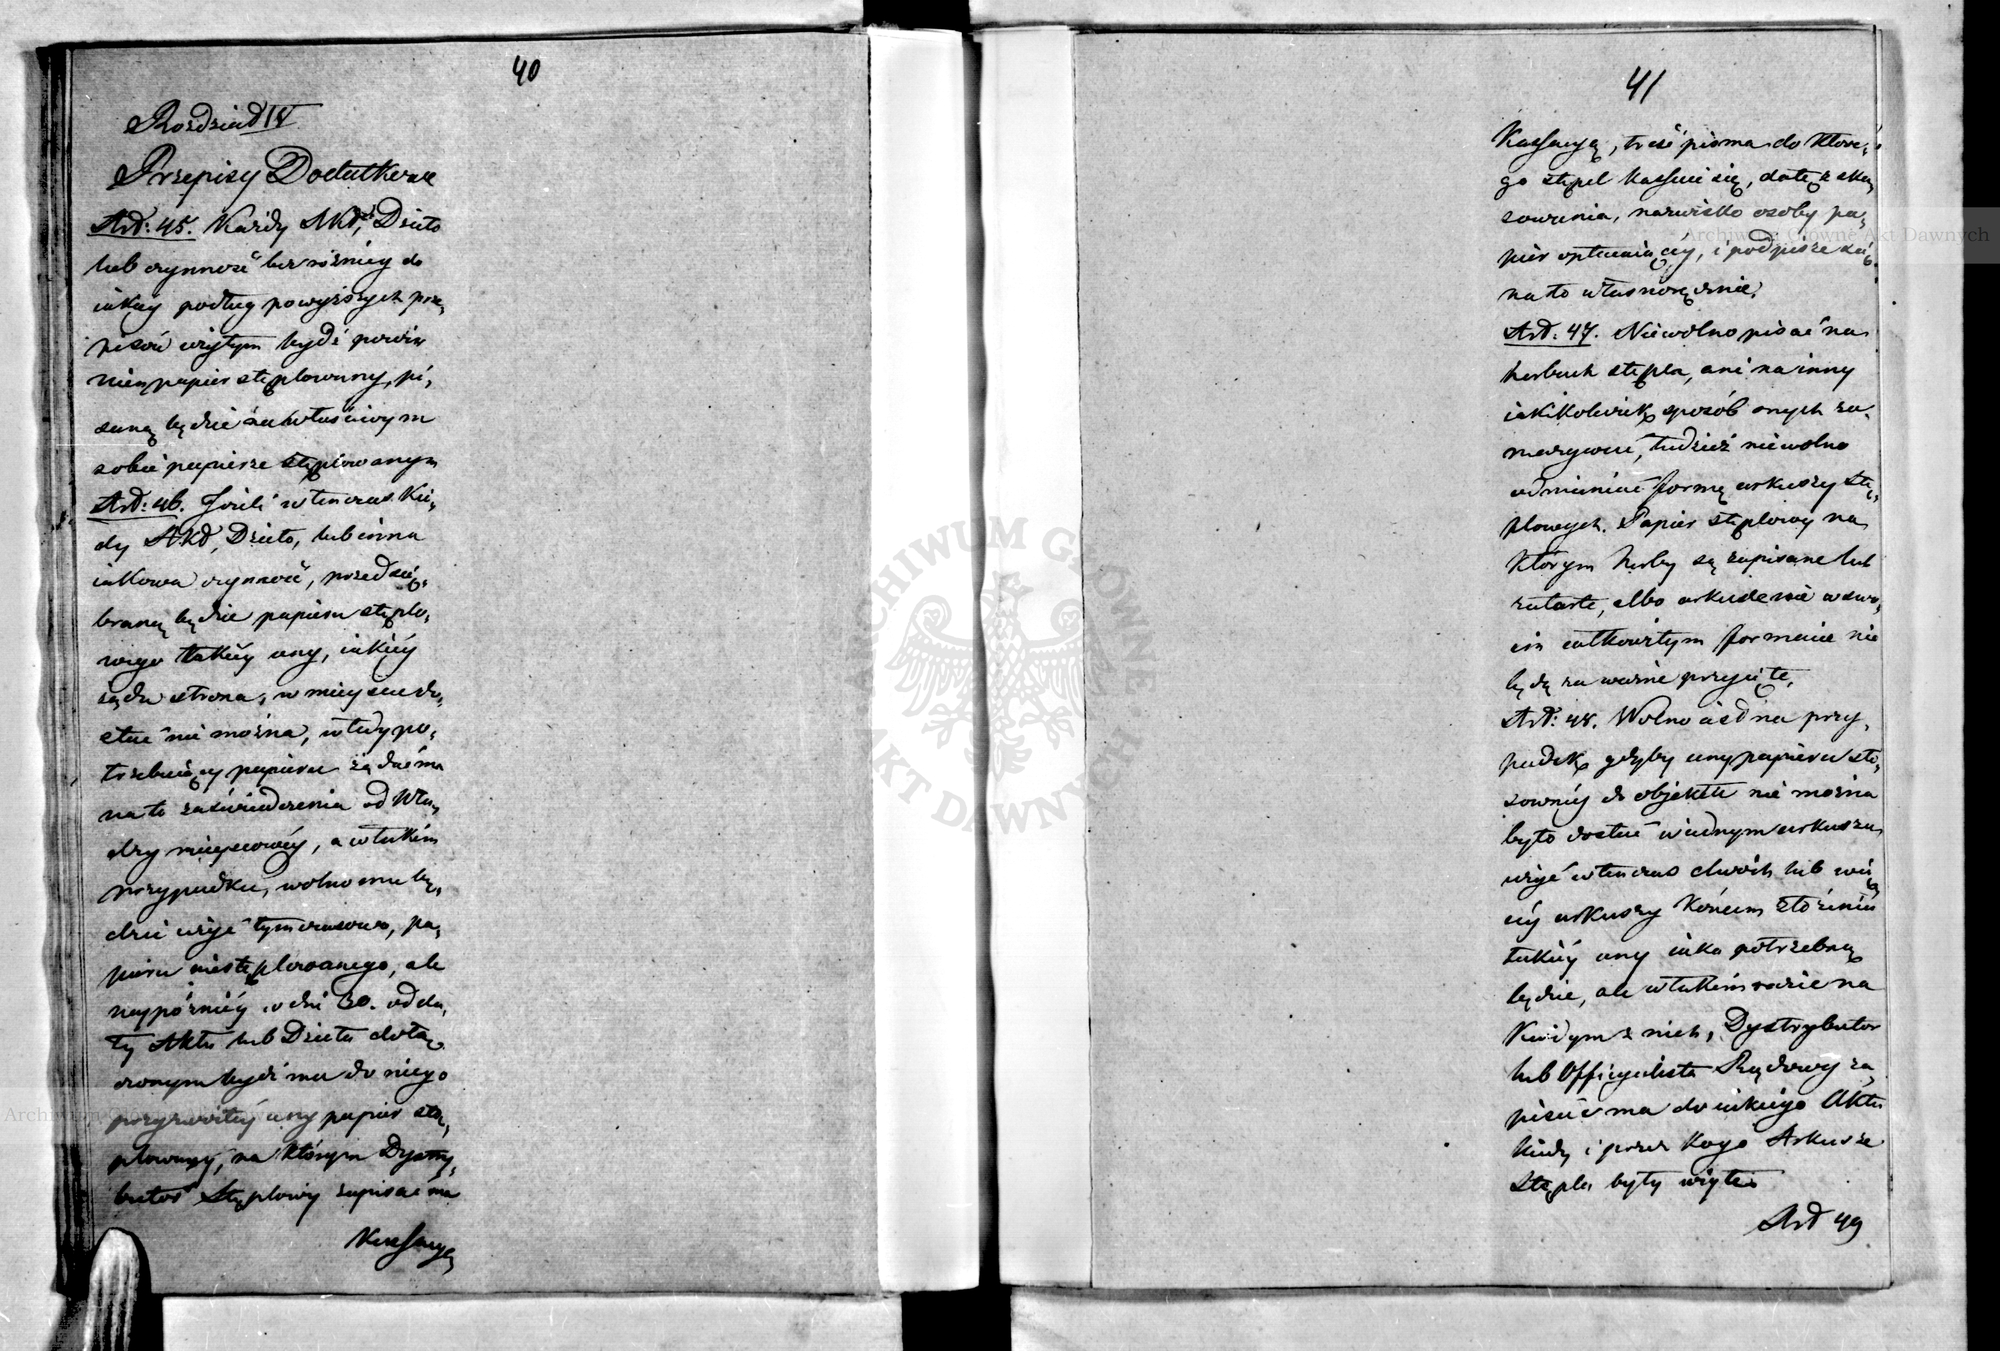 40
Rozdział IV
Przepisy Dodatkowe
Art: 45. Każdy Akt, Dzieło
lub czynność bez różnicy do
iakiey podług powyższych prze,
pisów użytym bydź powi
nien papier stęplowany, pi,
saną będzie na właściwym
sobie papierze stęplowanym
Art: 46. Jeżeli wtenczas kie,
dy Akt, Dzieło, lub inna
iakowa czynność, przedsię,
braną będzie papieru stęplo,
wego takiey ceny, iakiey
żąda strona, w mieyscu do,
stać nie można, wtedy po,
trzebuiący papieru żądać ma
na to zaświadczenia od Wła,
dzy mieyscowey, a w takim
przypadku, wolno mu bę,
dzie użyć tymczasowo, pa,
pieru niestęplowanego, ale
naypóźniey w dni 30. od da,
ty Aktu lub Dzieła dołą,
czonym bydź ma do niego
przyzwoitey ceny papier stę,
plowany, na którym Dystry,
butor Stęplowy zapisać ma
Kassacyą
41
Kassacyą, treść pisma do które,
go stępel kassuie się, datę skas,
sowania, nazwisko osoby pa,
pier opłacaiącey, i podpisze się
na to własnoręcznie.
Art: 47. Niewolno pisać na
herbach stępla, ani na inny
iakikolwiek sposób onych za,
mazywać, tudzież niewolno
odmieniać formę arkuszy stę,
plowych. Papier stęplowy na
którym herby są zapisane lub
zatarte, albo arkusze nie w swo,
im całkowitym formacie nie
będą za ważne przyięte.
Art: 48. Wolno iest na przy,
padek gdyby ceny papieru sto,
sowney do objektu nie można
było dostać w iednym arkuszu
użyć wtenczas dwóch lub wię
cey arkuszy końcem złożenia
takiey ceny iaka potrzebną
będzie, ale w takim razie na
Każdym z nich, Dystrybutor
lub Officyalista Rządowy za,
pisać ma do iakiego Aktu
kiedy i przez kogo Arkusze
Stępla były wzięte.
Art 49
Archiwum Główne Akt Dawnych
ARCHIWUM GŁÓWNE AKT DAWNYCH
Archiwum Główne Akt Dawnych